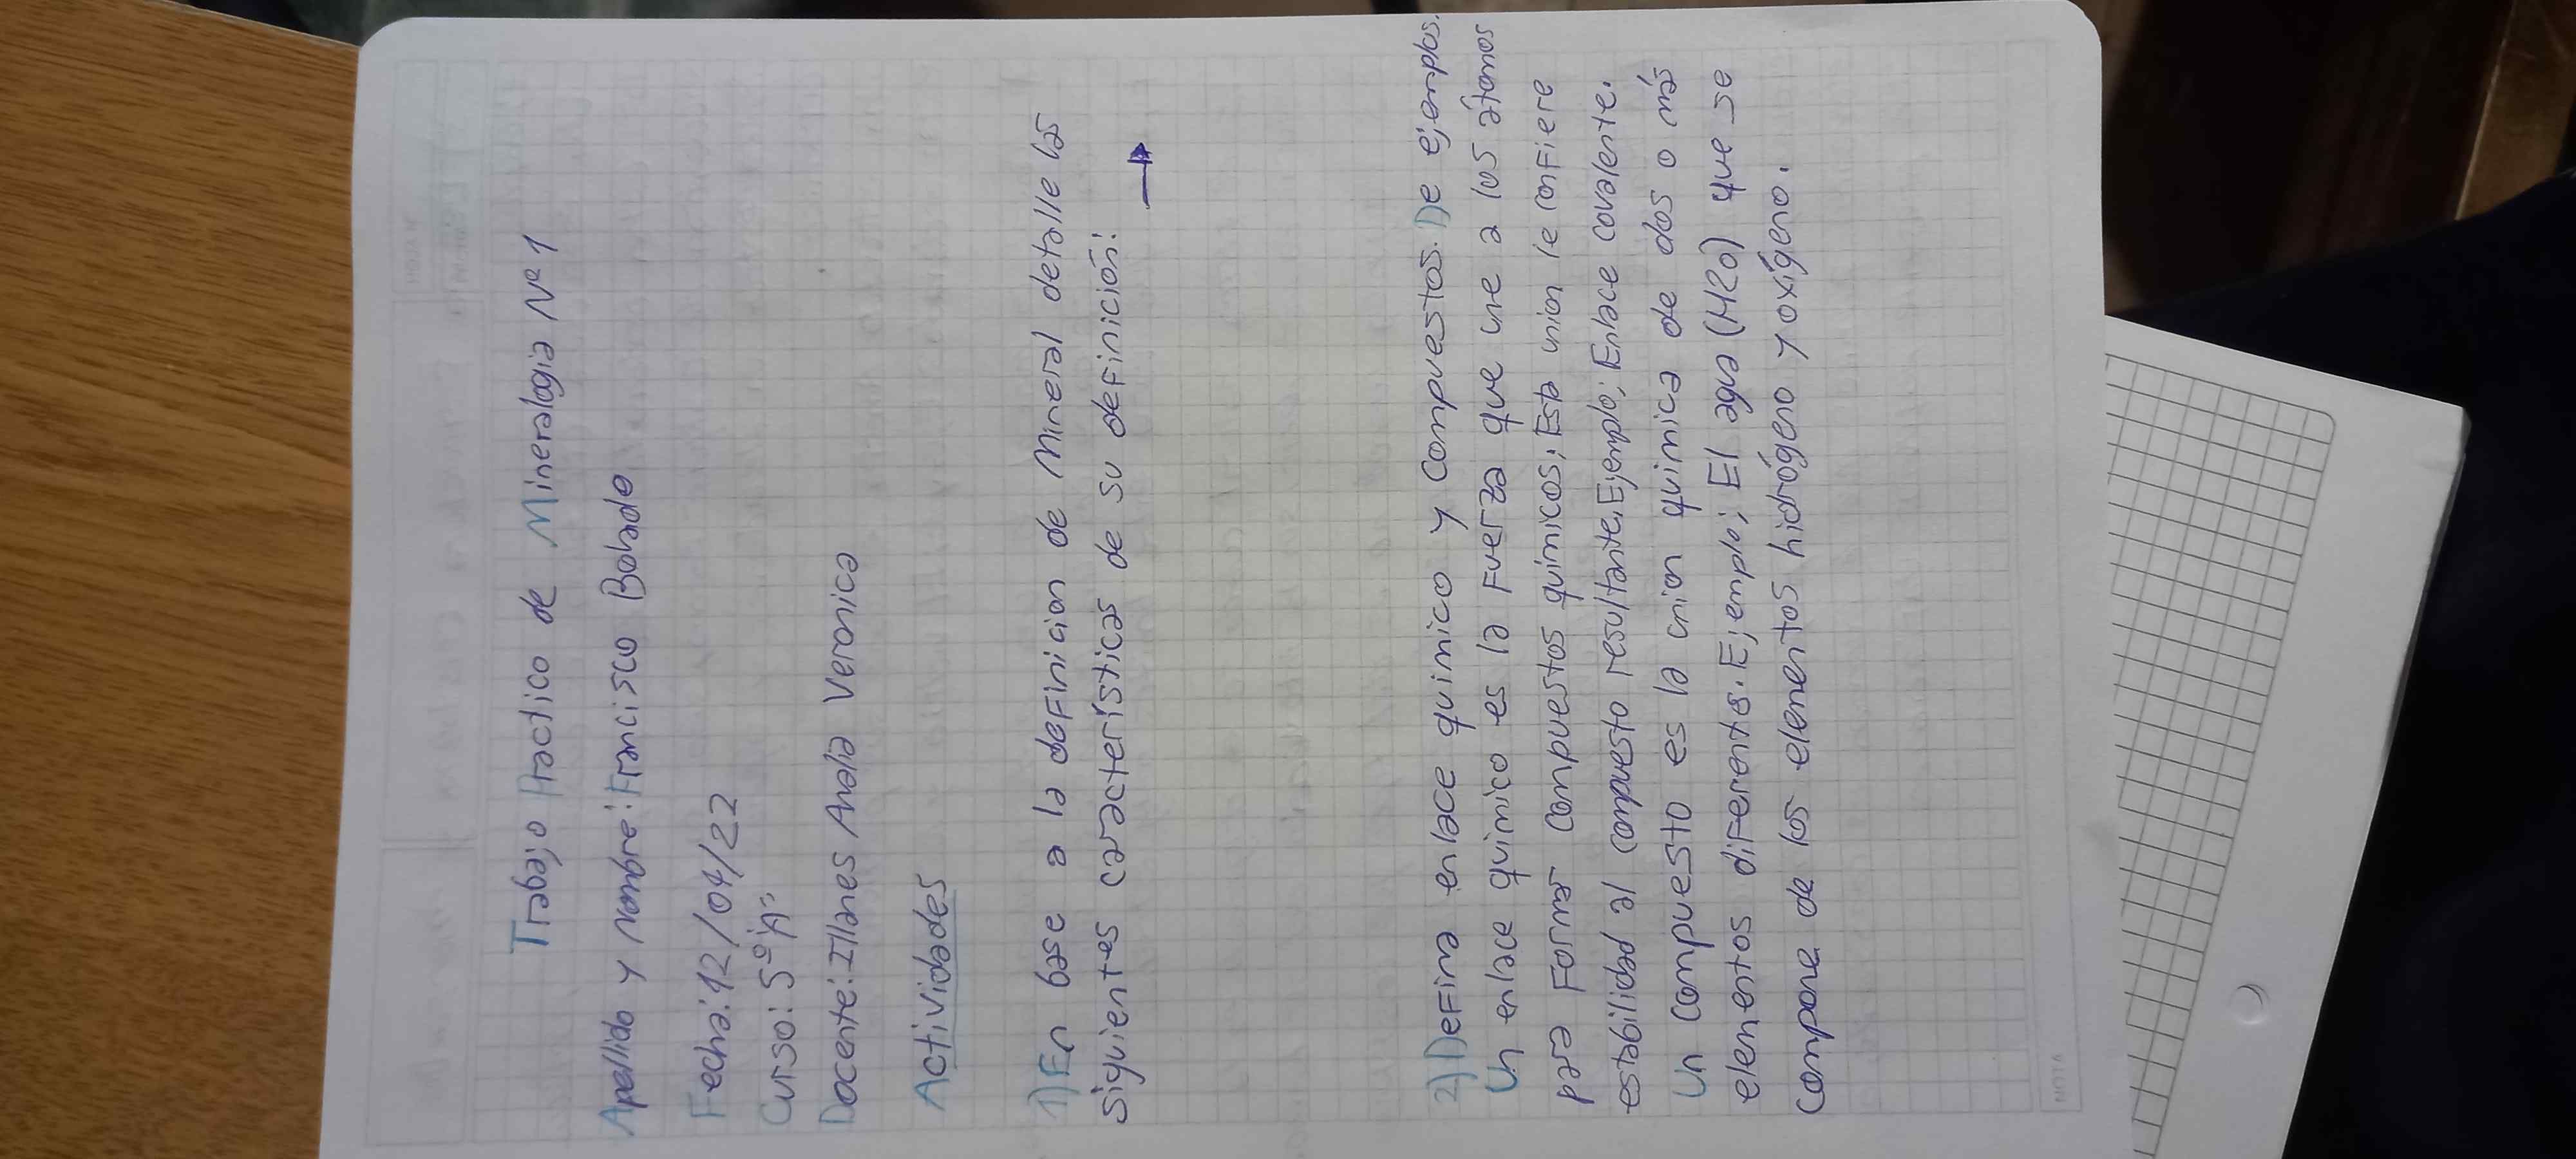 Trabajo Practico de Mineralogia Nº 1
Apellido y nombre: Francisco Bobado
Fecha: 12/04/22
Curso: 5º "A"
Docente: Illanes Analia Veronica
Actividades
1) En base a la definicion de Mineral detalle las
siguientes características de su definición:
2) Defina enlace quimico y Compuestos. De ejemplos.
Un enlace quimico es la Fuerza que une a los átomos
para Formar Compuestos químicos; Esta union le confiere
estabilidad al compuesto resultante. Ejemplo; Enlace covalente.
Un compuesto es la union quimica de dos o más
elementos diferentes. Ejemplo; El agua (H2O) que se
compone de los elementos hidrógeno y oxígeno.
NOTA